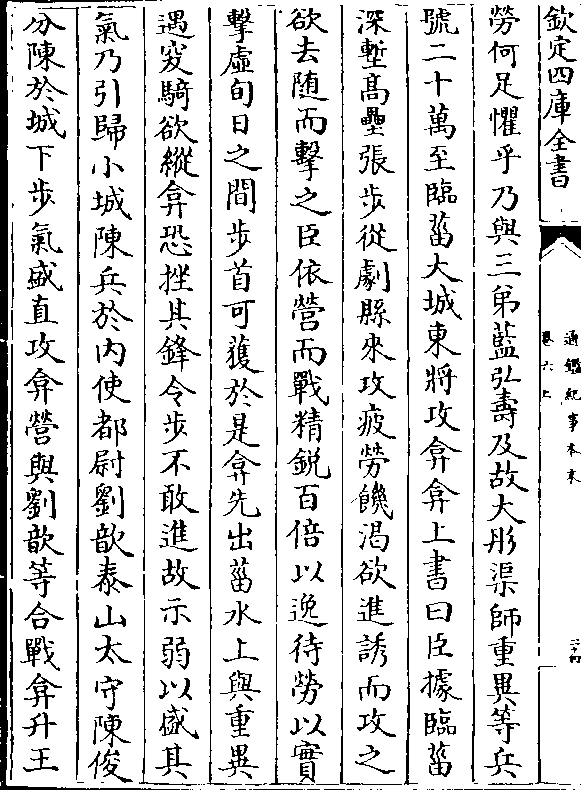 欽定四庫全書
通鑑紀事本末
卷六上
二十四
勞何足懼乎乃與三弟藍弘壽及故大彤渠師重異等兵
號二十萬至臨菑大城東將攻弇弇上書曰臣據臨菑
深塹髙壘張步從劇縣來攻疲勞饑渴欲進誘而攻之
欲去随而擊之臣依營而戰精鋭百倍以逸待勞以實
擊虛旬日之間步首可獲於是弇先出菑水上與重異
遇突騎欲縱弇恐挫其鋒令步不敢進故示弱以盛其
氣乃引歸小城陳兵於内使都尉劉歆泰山太守陳俊
分陳於城下步氣盛直攻弇營與劉歆等合戰弇升王